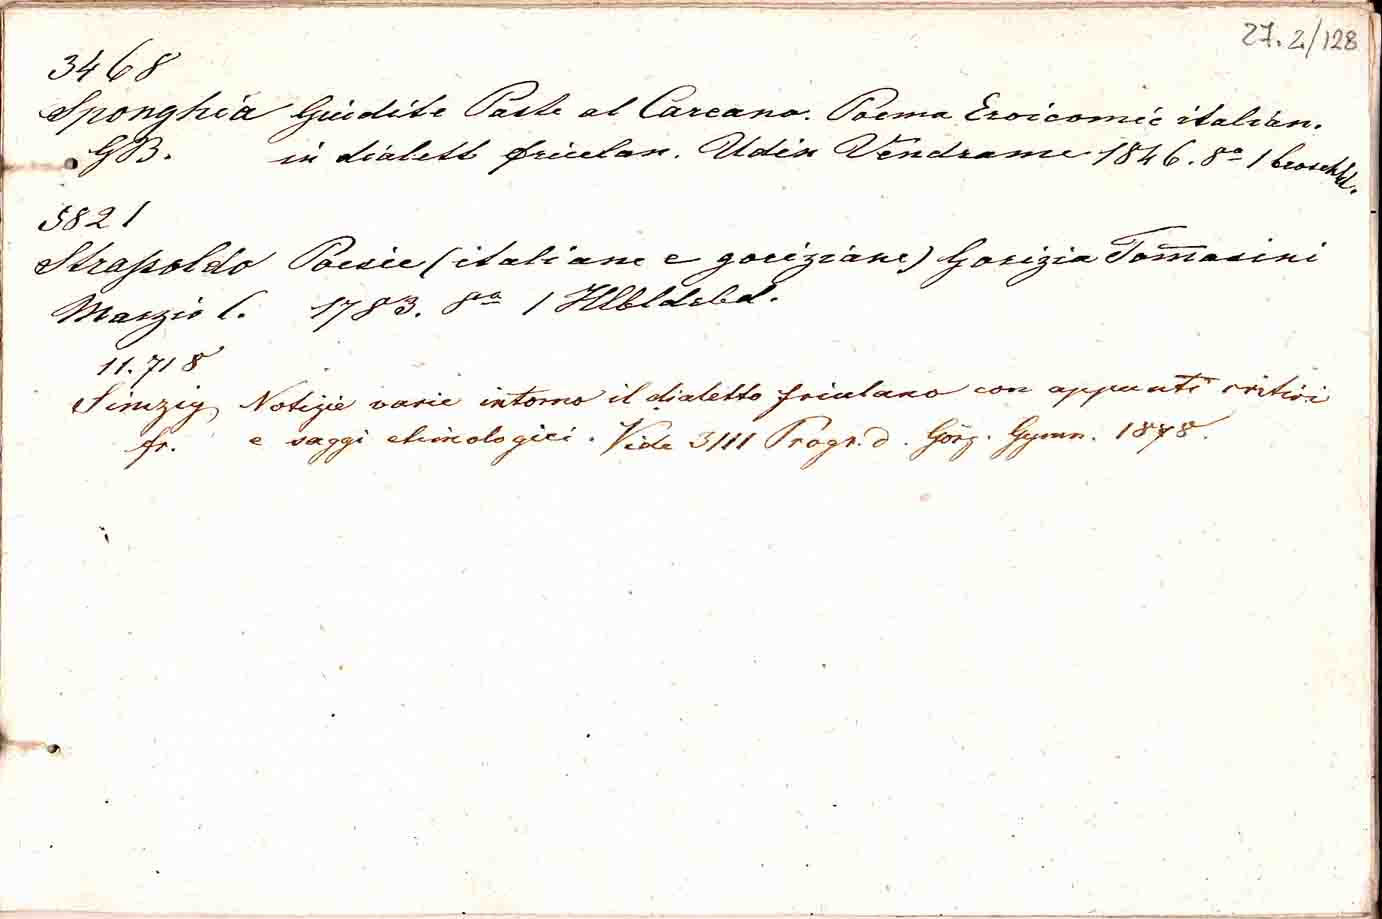 27.2/128
3468
Sponghia Giudite Paste al Carcano. Poema Eroicomic italian.
GB. in dialett friulan. Udin Vendrame 1846. 8º 1 broschbd.
5821
Straßoldo Poesie (italiane e goriziane) Gorizia Tom̅asini
Marzio C. 1783. 8º 1 Hlbldrbd.
11.718
Simzig Notizie varie intorno il dialetto friulano con appunti critici
fr. e saggi etimologici. Vide 3111 Progr. d. Görz. Gymn. 1878.